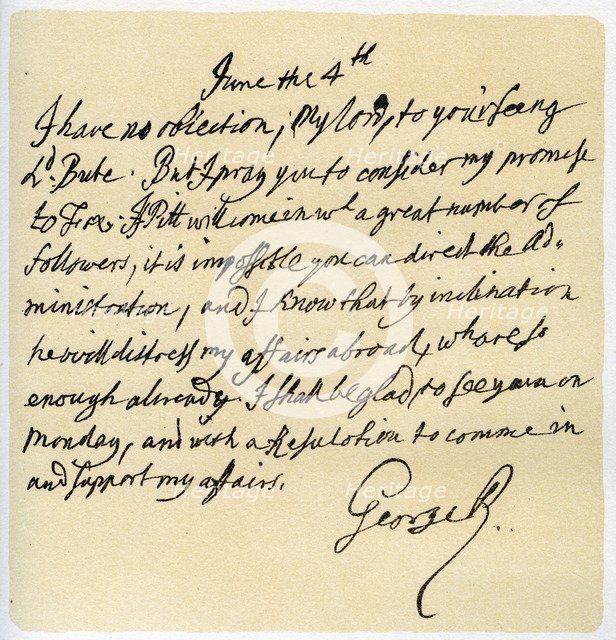 June the 4th
I have no obiection, My lord, to your seeing
Ld. Bute. But I pray you to consider my promise
to Fox. If Pitt will come in wt a great number of
followers, it is impossible you can direct the Ad=
ministration, and I know that by inclination
he will distress my affairs abroad, wh are so
enough already. I shall be glad to see you on
Monday, and with a Resulotion to comme in
and support my affairs.
George R.
Heritage
Heritage
Heritage
Heritage
Heritage
Heritage
©